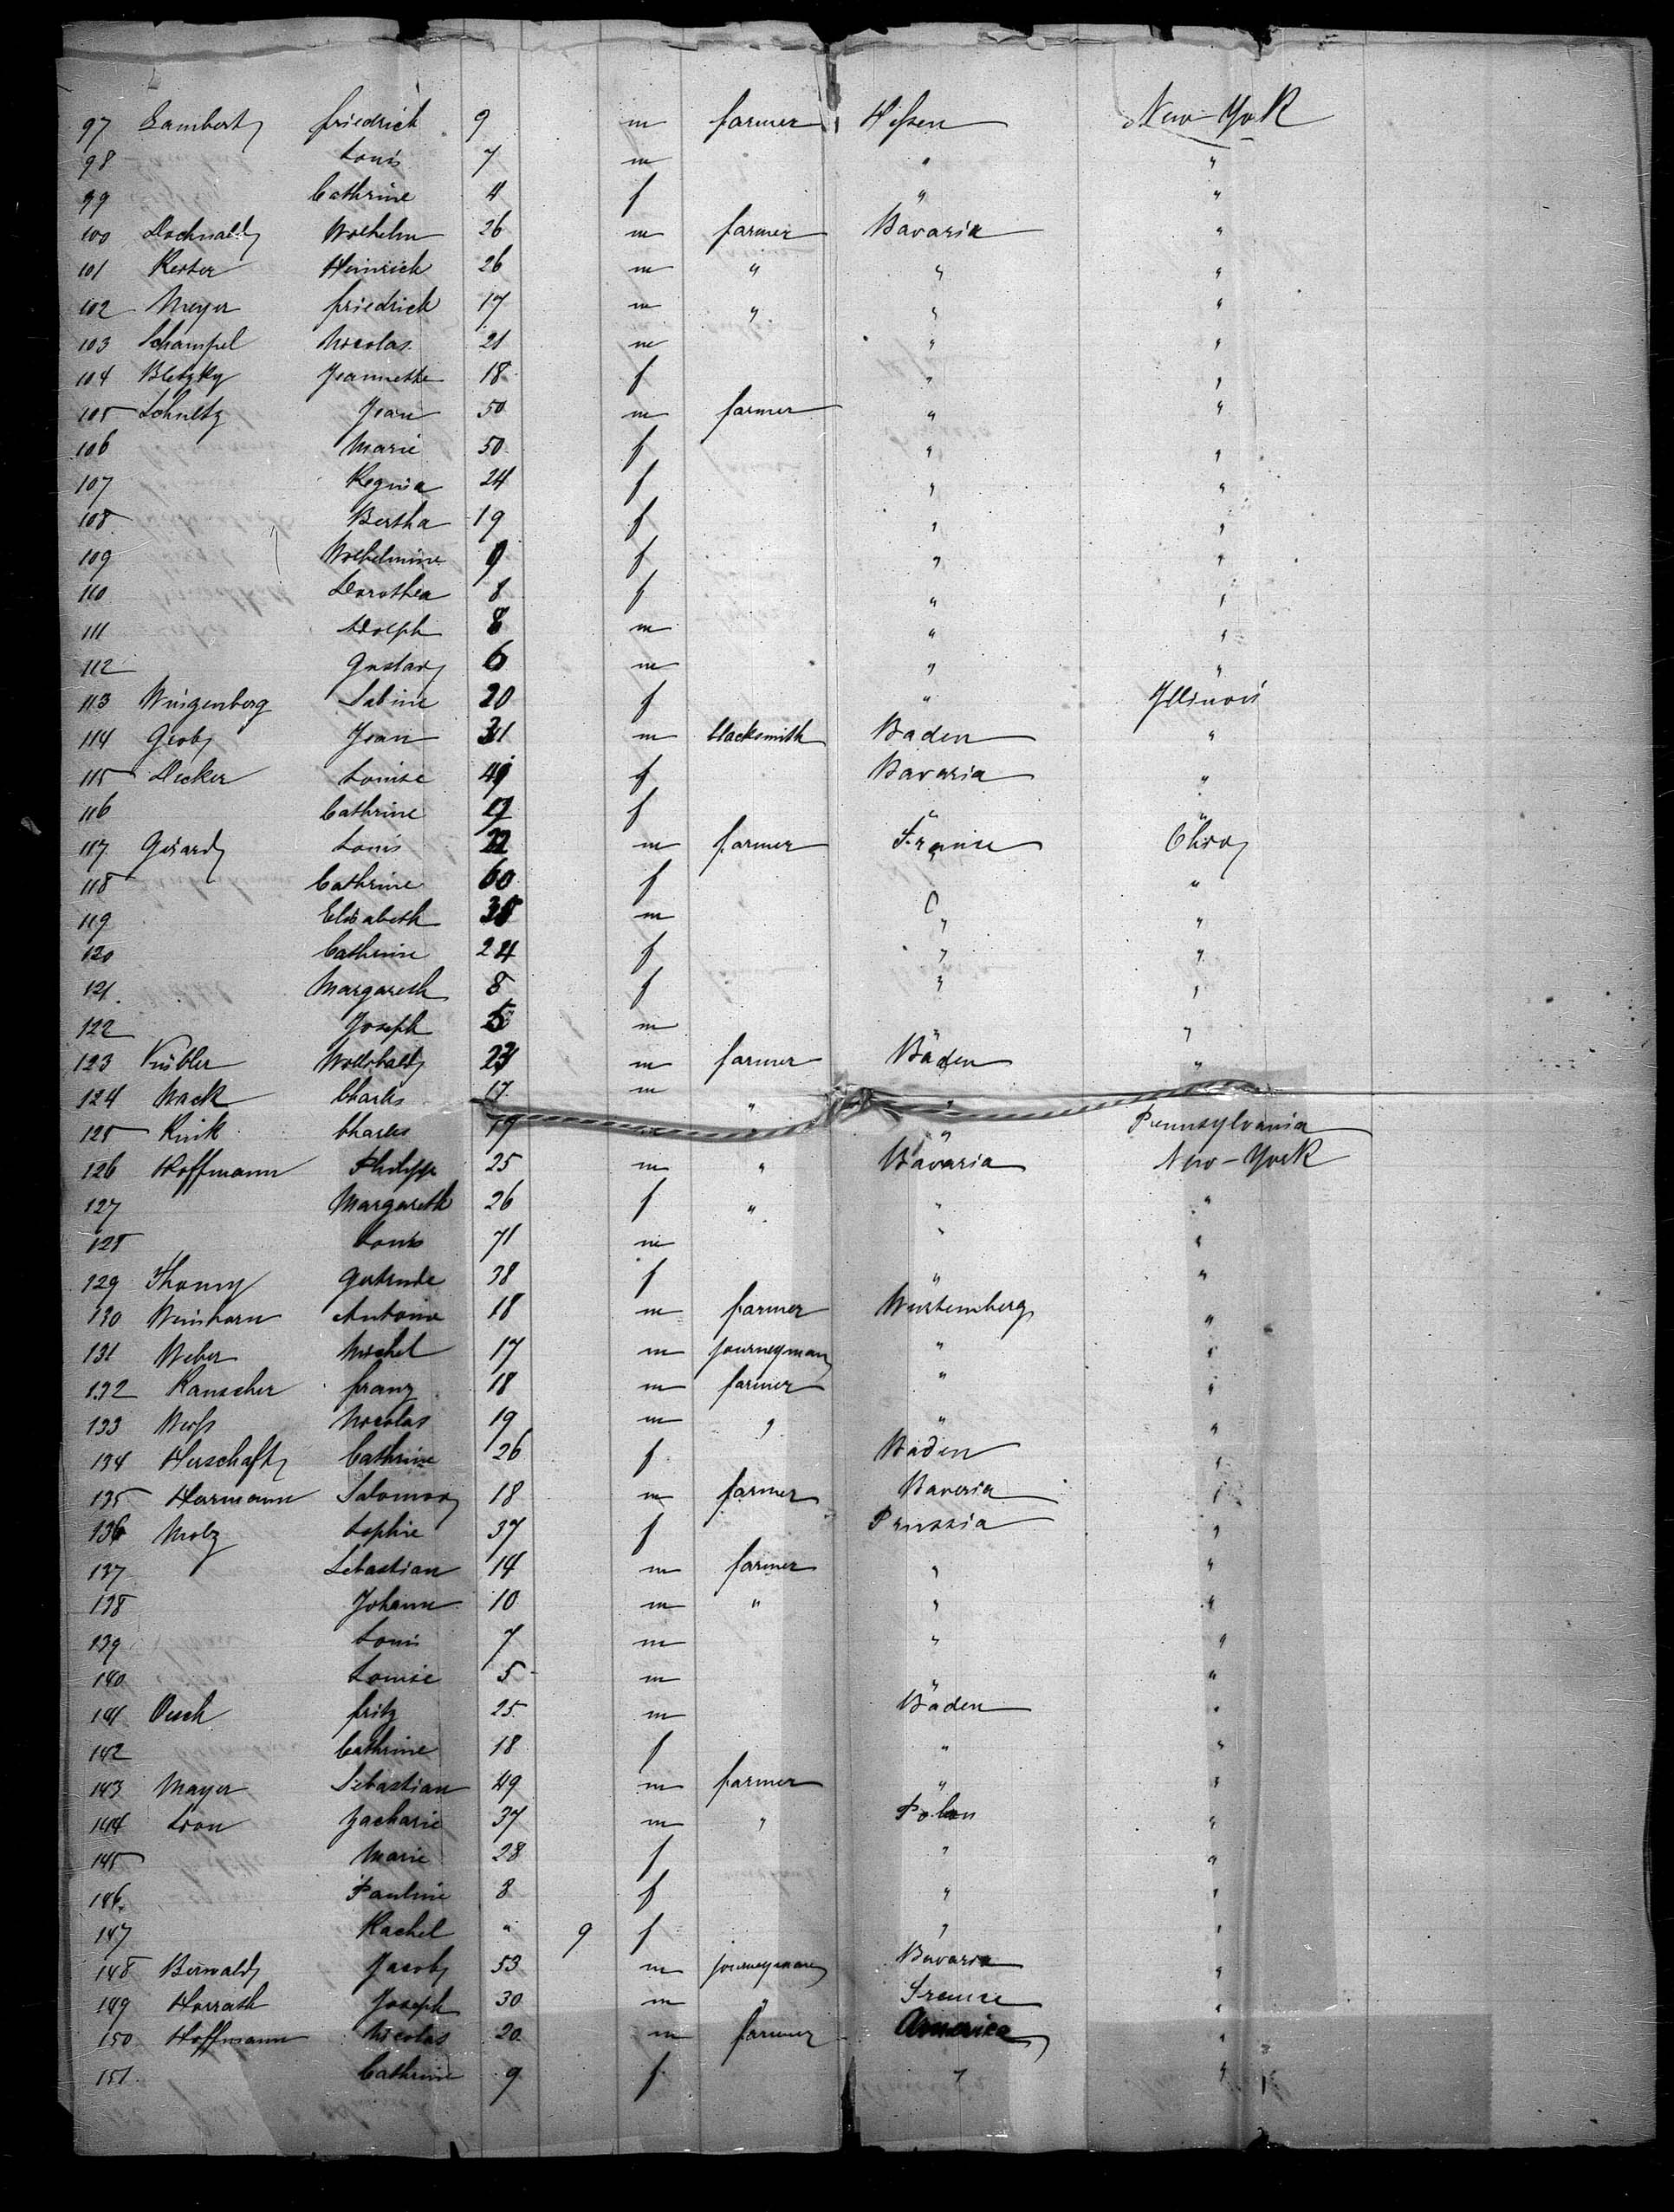 97 Lambert friedrich 9 m farmer Hessen New-York
98 Louis 7 m " "
99 Cathrine 4 f " "
100 Dochnald Wilhelm 26 m farmer Bavaria "
101 Kester Heinrich 26 m " " "
102 Meyer friedrich 17 m " " "
103 Schampel Nicolas 21 m " "
104 Bletzky Jeannette 18 f " "
105 Schultz Jean 50 m farmer " "
106 Marie 50 f " "
107 Regina 24 f " "
108 Bertha 19 f " "
109 Wilhelmine 9 f " "
110 Dorothea 8 f " "
111 Adolph 8 m " "
112 Gustav 6 m " "
113 Wingenberg Sabine 20 f " Illinois
114 Grob Jean 31 m blacksmith Baden "
115 Decker Louise f Bavaria "
116 Cathrine f " "
117 Gérard Louis 22 m farmer France Ohio
118 Cathrine 60 f " "
119 Elisabeth 35 m " "
120 Catherine 24 f " "
121 Margareth 8 f " "
122 Joseph 5 m " "
123 Kübler Willibald m farmer Baden "
124 Mack Charles 17 m " " "
125 Kink Charles 19 " Pennsylvania
126 Hoffmann Philipp 25 m " Bavaria New-York
127 Margareth 26 f " " "
128 Louis 71 m " "
129 Thomy Gertrude 38 f " "
130 Weinhorn Antoine 18 m farmer Wurtemberg "
131 Weber Michel 17 m journeyman " "
132 Rauscher franz 18 m farmer " "
133 Weiss Nicolas 19 m " " "
134 Herschaft Cathrine 26 f Baden "
135 Hermann Salomon 18 m farmer Baveria "
136 Molz Sophie 37 f Prussia "
137 Sebastian 14 m farmer " "
138 Johann 10 m " " "
139 Louis 7 m " "
140 Louise 5 m " "
141 Oesch fritz 25 m Baden "
142 Cathrine 18 f " "
143 Mayer Sebastian 49 m farmer " "
144 Lion Zacharie 37 m " Polen "
145 Marie 28 f " "
146 Pauline 8 f " "
147 Rachel " 9 f " "
148 Berwald Jacob 53 m journeyman Bavaria "
149 Horrath Joseph 30 m " France "
150 Hoffmann Nicolas 20 m farmer America "
151 Cathrine 9 f " "